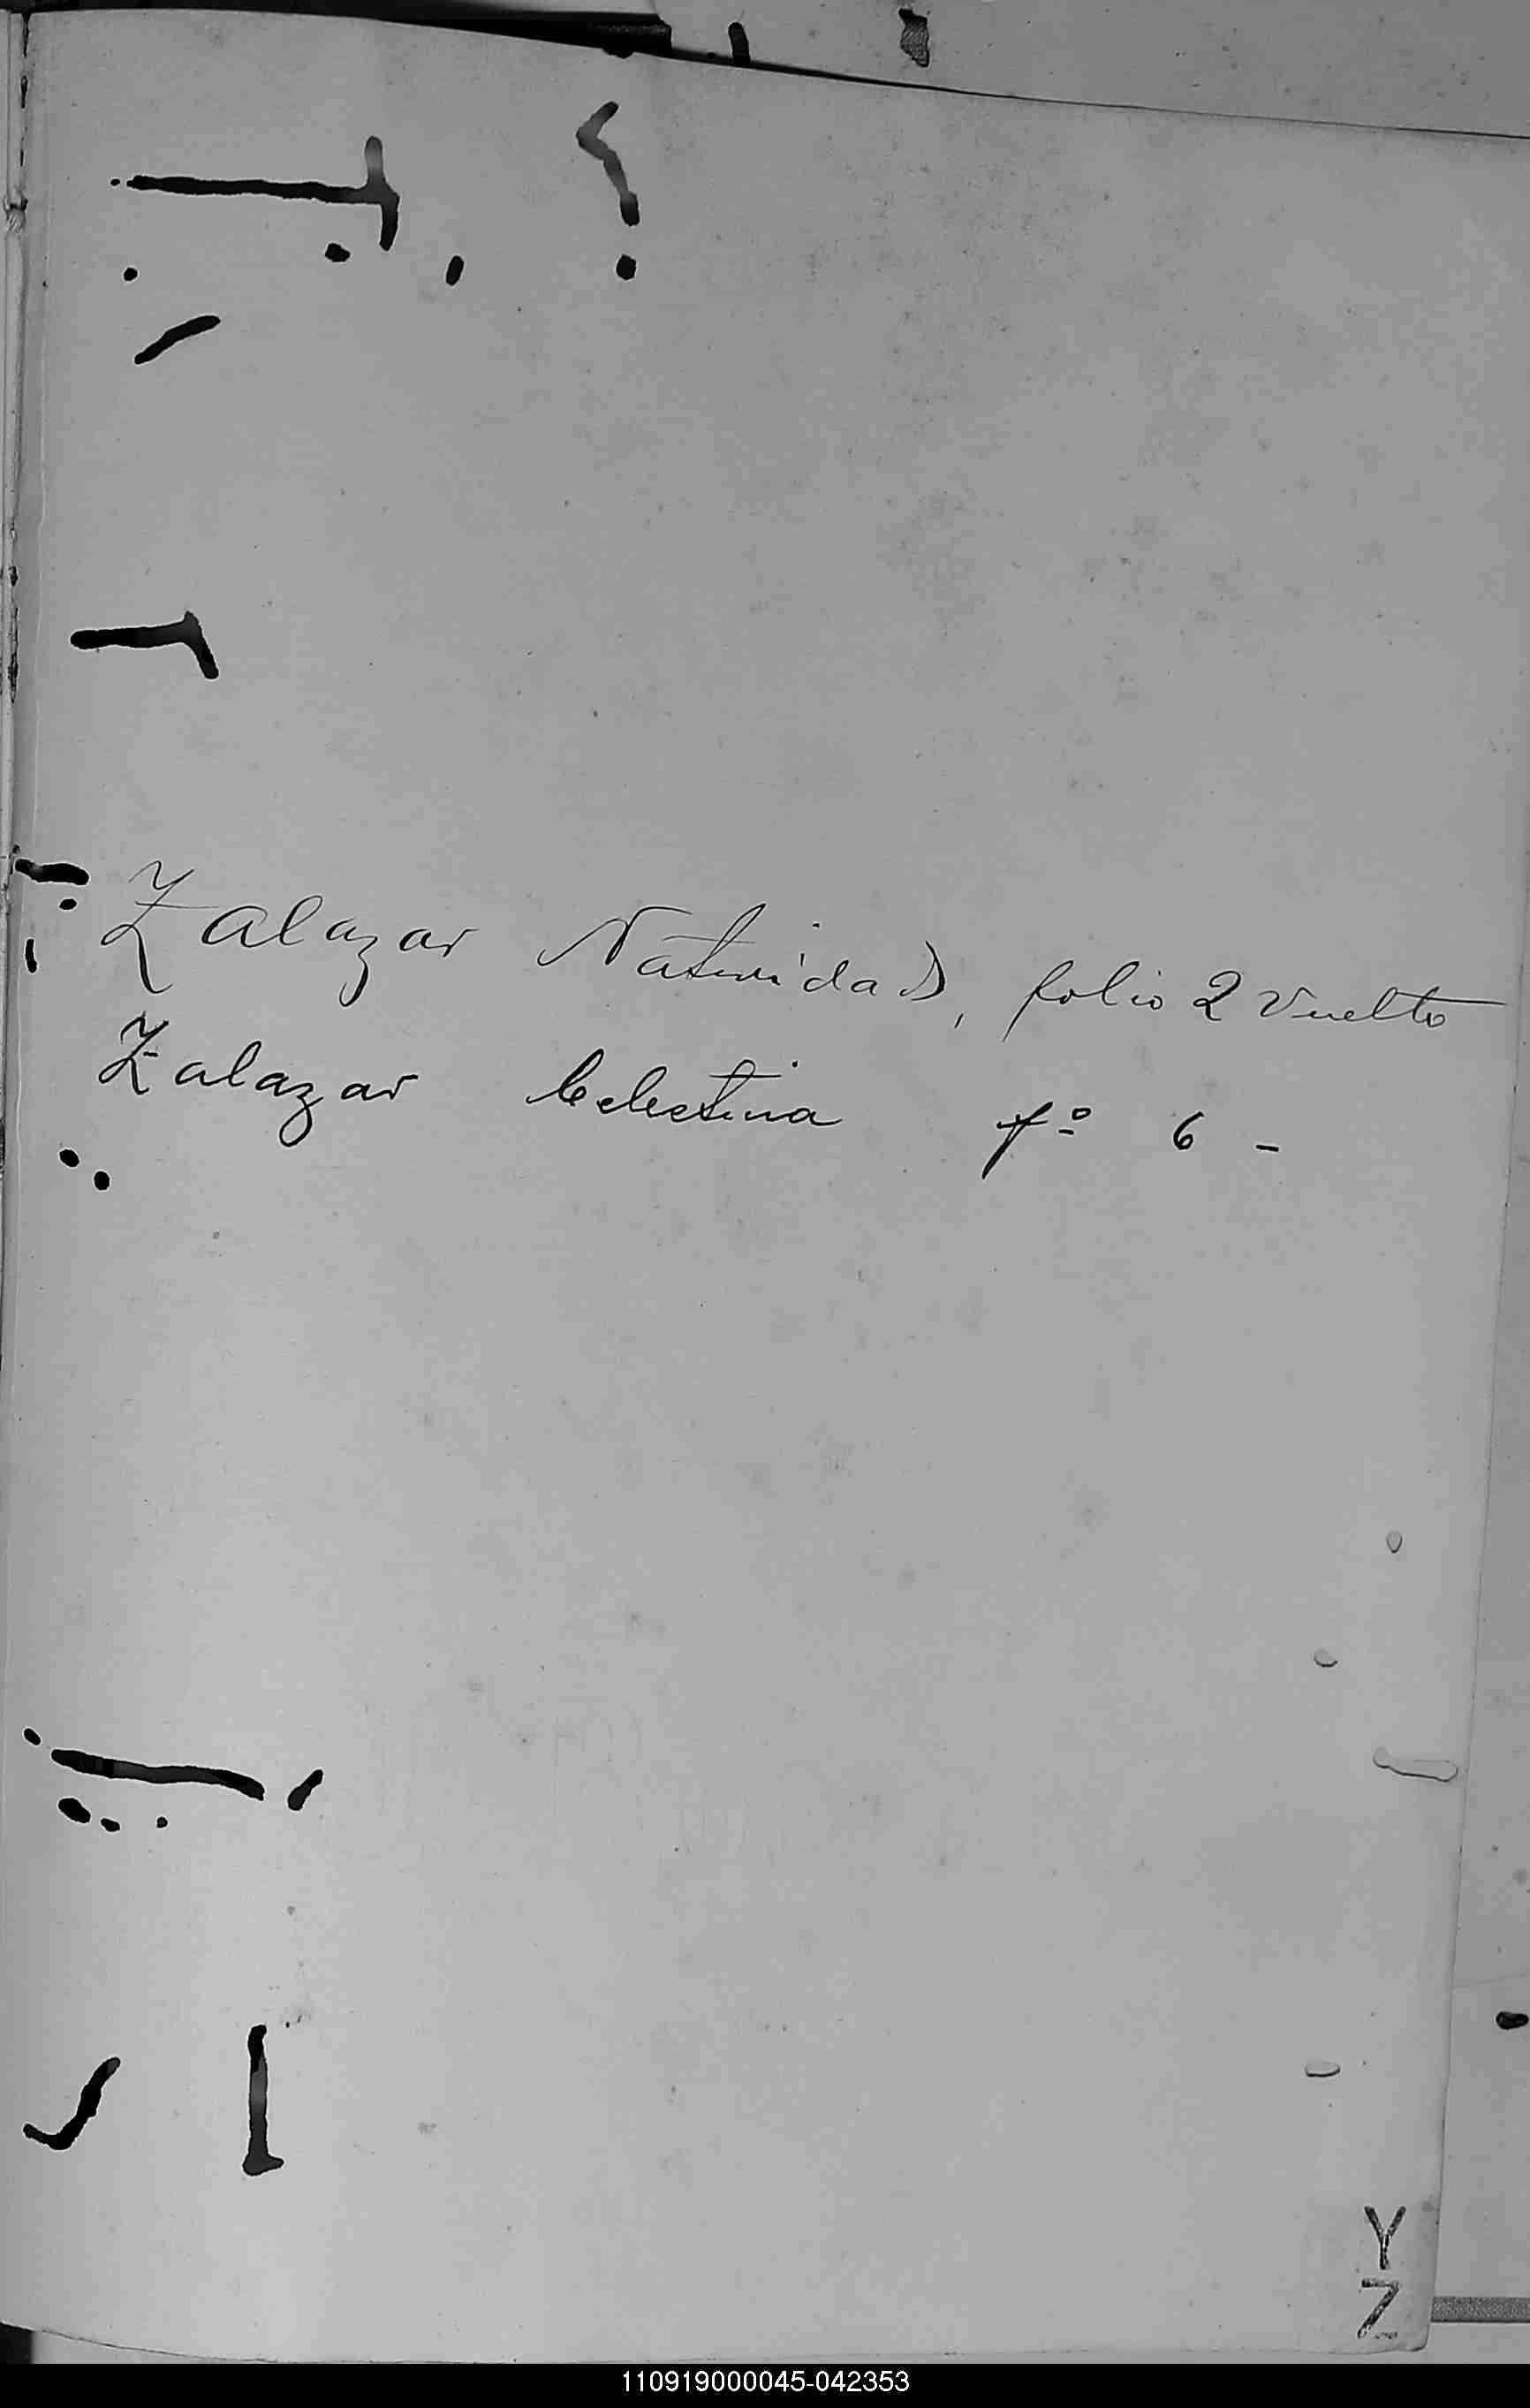 Zalazar Natividad, folio 2 vuelto
Zalazar Celestina fº 6 -
Y
Z
110919000045-042353